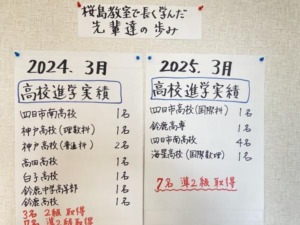 桜島教室で長く学んだ
先輩達の歩み
2024. 3月
高校進学実績
四日市南高校 1名
神戸高校(理数科) 1名
神戸高校(普通科) 2名
高田高校 1名
白子高校 1名
鈴鹿中学高等部 1名
鈴鹿高校 1名
3名 2級 取得
7名 準2級 取得
2025. 3月
高校進学実績
四日市高校(国際科) 1名
鈴鹿高専 1名
四日市南高校 4名
海星高校(国際数理) 1名
7名 準2級 取得